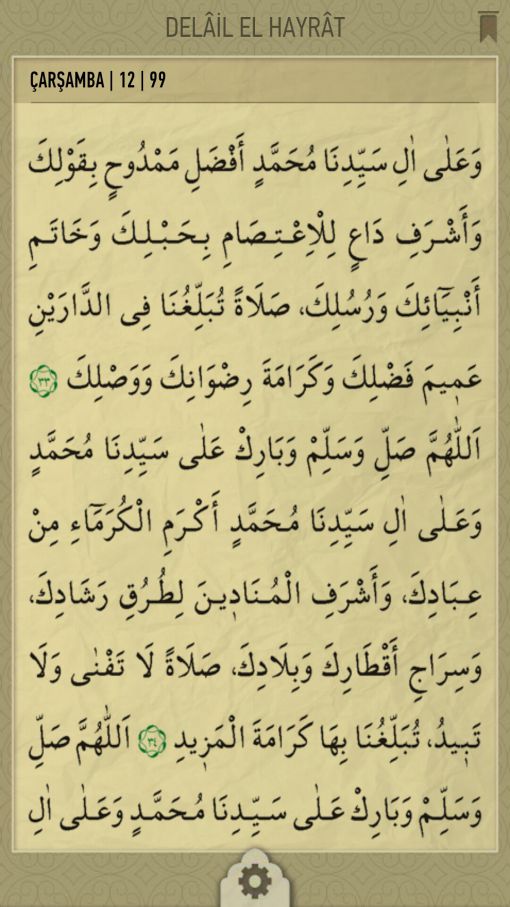 DELÂİL EL HAYRÂT
ÇARŞAMBA | 12 | 99
وَعَلٰى اٰلِ سَيِّدِنَا مُحَمَّدٍ أَفْضَلِ مَمْدُوحٍ بِقَوْلِكَ
وَأَشْرَفِ دَاعٍ لِلْاِعْتِصَامِ بِحَبْلِكَ وَخَاتَمِ
أَنْبِيَٓائِكَ وَرُسُلِكَ، صَلَاةً تُبَلِّغُنَا فِى الدَّارَيْنِ
عَمِيمَ فَضْلِكَ وَكَرَامَةَ رِضْوَانِكَ وَوَصْلِكَ ٣٣
اَللّٰهُمَّ صَلِّ وَسَلِّمْ وَبَارِكْ عَلٰى سَيِّدِنَا مُحَمَّدٍ
وَعَلٰى اٰلِ سَيِّدِنَا مُحَمَّدٍ أَكْرَمِ الْكُرَمَٓاءِ مِنْ
عِبَادِكَ، وَأَشْرَفِ الْمُنَادِينَ لِطُرُقِ رَشَادِكَ،
وَسِرَاجِ أَقْطَارِكَ وَبِلَادِكَ، صَلَاةً لَا تَفْنٰى وَلَا
تَبِيدُ، تُبَلِّغُنَا بِهَا كَرَامَةَ الْمَزِيدِ ٣٤ اَللّٰهُمَّ صَلِّ
وَسَلِّمْ وَبَارِكْ عَلٰى سَيِّدِنَا مُحَمَّدٍ وَعَلٰى اٰلِ